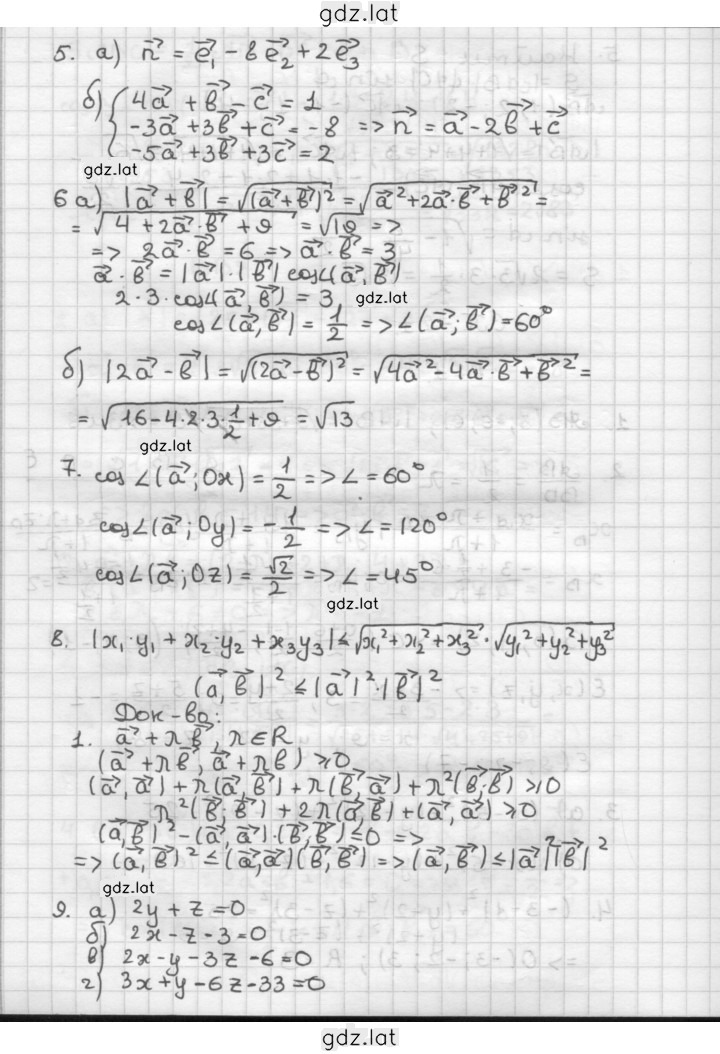 gdz.lat
5. а) n⃗ = e⃗₁ - 8e⃗₂ + 2e⃗₃
б) { 4a⃗ + b⃗ - c⃗ = 1
-3a⃗ + 3b⃗ + c⃗ = -8 => n⃗ = a⃗ - 2b⃗ + c⃗
-5a⃗ + 3b⃗ + 3c⃗ = 2
gdz.lat
6 а) |a⃗ + b⃗| = √(a⃗ + b⃗)² = √a⃗² + 2a⃗·b⃗ + b⃗² =
= √4 + 2a⃗·b⃗ + 9 = √19 =>
=> 2a⃗·b⃗ = 6 => a⃗·b⃗ = 3
a⃗·b⃗ = |a⃗|·|b⃗| cos∠(a⃗, b⃗)
2·3·cos∠(a⃗, b⃗) = 3 gdz.lat
cos∠(a⃗, b⃗) = 1/2 => ∠(a⃗; b⃗) = 60°
б) |2a⃗ - b⃗| = √(2a⃗ - b⃗)² = √4a⃗² - 4a⃗·b⃗ + b⃗² =
= √16 - 4·2·3·1/2 + 9 = √13
gdz.lat
7. cos∠(a⃗; Ox) = 1/2 => ∠ = 60°
cos∠(a⃗; Oy) = -1/2 => ∠ = 120°
cos∠(a⃗; Oz) = √2/2 => ∠ = 45°
gdz.lat
8. |x₁·y₁ + x₂·y₂ + x₃y₃| ≤ √x₁² + x₂² + x₃² · √y₁² + y₂² + y₃²
(a⃗, b⃗)² ≤ |a⃗|²·|b⃗|²
Док-во:
1. a⃗ + λb⃗, λ∈R
(a⃗ + λb⃗, a⃗ + λb⃗) ≥ 0
(a⃗, a⃗) + λ(a⃗, b⃗) + λ(b⃗, a⃗) + λ²(b⃗; b⃗) ≥ 0
λ²(b⃗; b⃗) + 2λ(a⃗, b⃗) + (a⃗, a⃗) ≥ 0
(a⃗, b⃗)² - (a⃗, a⃗)·(b⃗, b⃗) ≤ 0 =>
=> (a⃗, b⃗)² ≤ (a⃗, a⃗)(b⃗, b⃗) => (a⃗, b⃗) ≤ |a⃗|²|b⃗|²
gdz.lat
9. а) 2y + z = 0
б) 2x - z - 3 = 0
в) 2x - y - 3z - 6 = 0
г) 3x + y - 6z - 33 = 0
gdz.lat